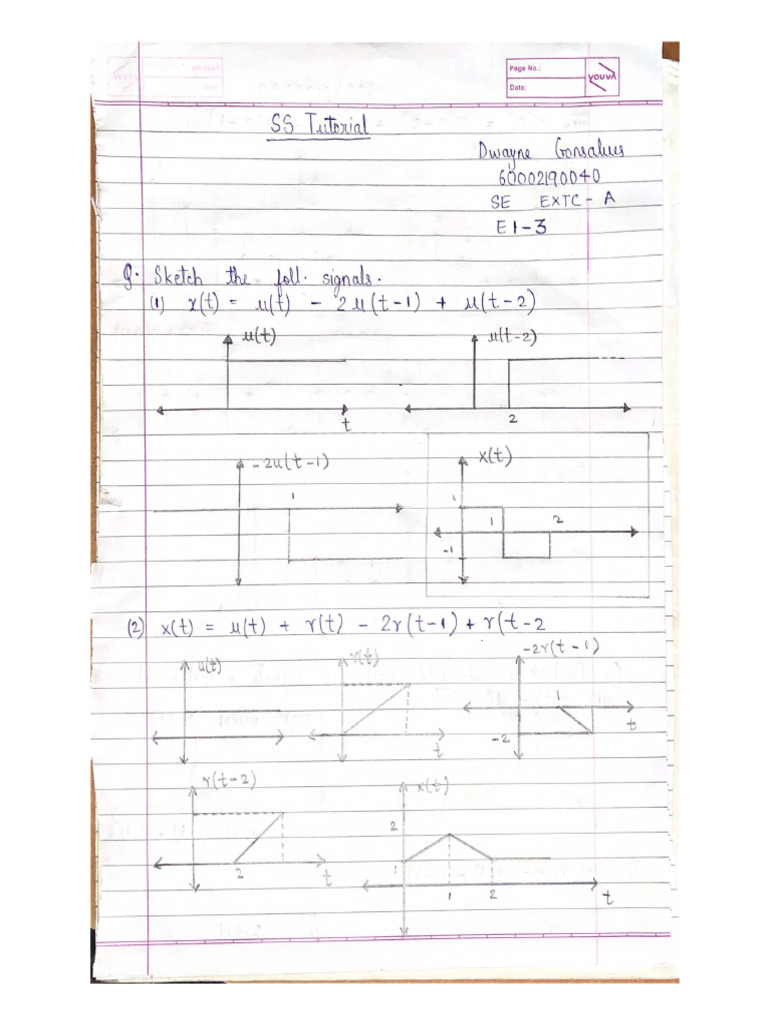 Page No.:
Date:
YOUVA
SS Tutorial
Dwayne Gonsalves
60002190040
SE EXTC - A
E1-3
Q. Sketch the foll. signals.
(1) x(t) = u(t) - 2u(t-1) + u(t-2)
u(t)
u(t-2)
t
2
-2u(t-1)
1
x(t)
1
1
2
-1
(2) x(t) = u(t) + r(t) - 2r(t-1) + r(t-2
u(t)
r(t)
-2r(t-1)
1
t
-2
t
r(t-2)
x(t)
2
2
t
1
1
2
t